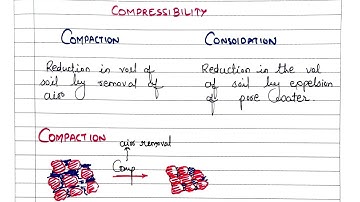 COMPRESSIBILITY
COMPACTION CONSOIDATION
Reduction in vol of Reduction in the vol
soil by removal of of soil by expelsion
air of pore water.
COMPACTION
air removal
Comp